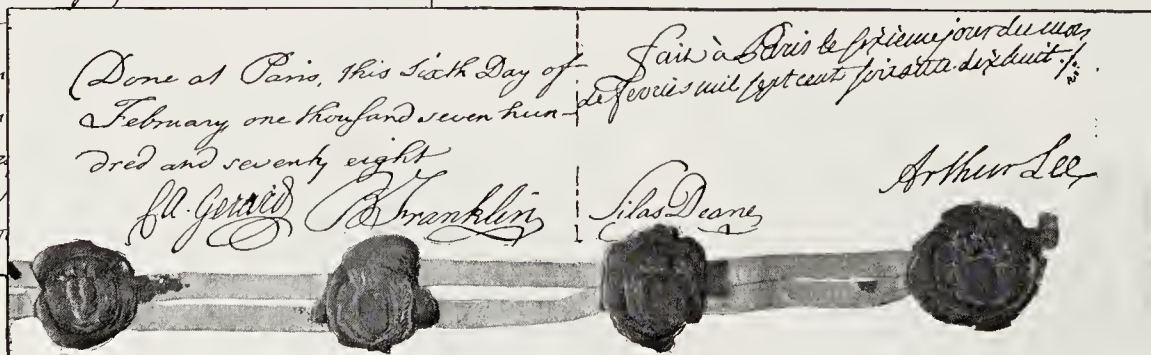 Done at Paris, this Sixth Day of
February, one thousand seven hun-
dred and seventy eight
fait à Paris le sixieme jour du mois
de fevrier mil sept cent soixante dix huit ./.
C. A. Gerard B Franklin Silas Deane Arthur Lee